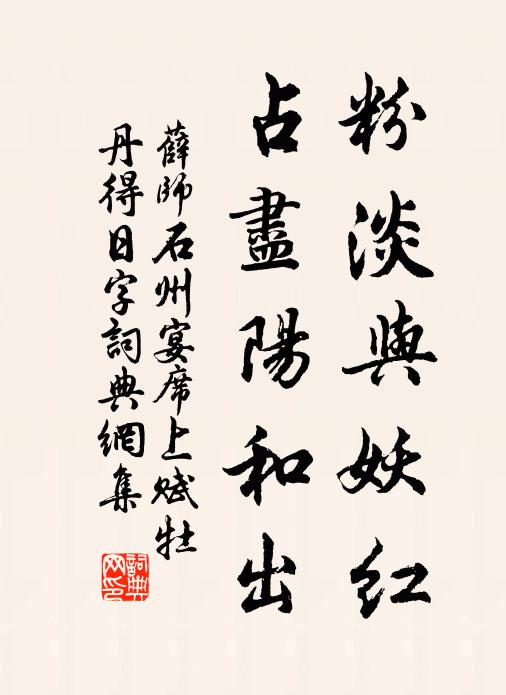 粉淡與妖紅
占盡陽和出
薛師石州宴席上賦牡
丹得日字詞典網集
詞典
网印